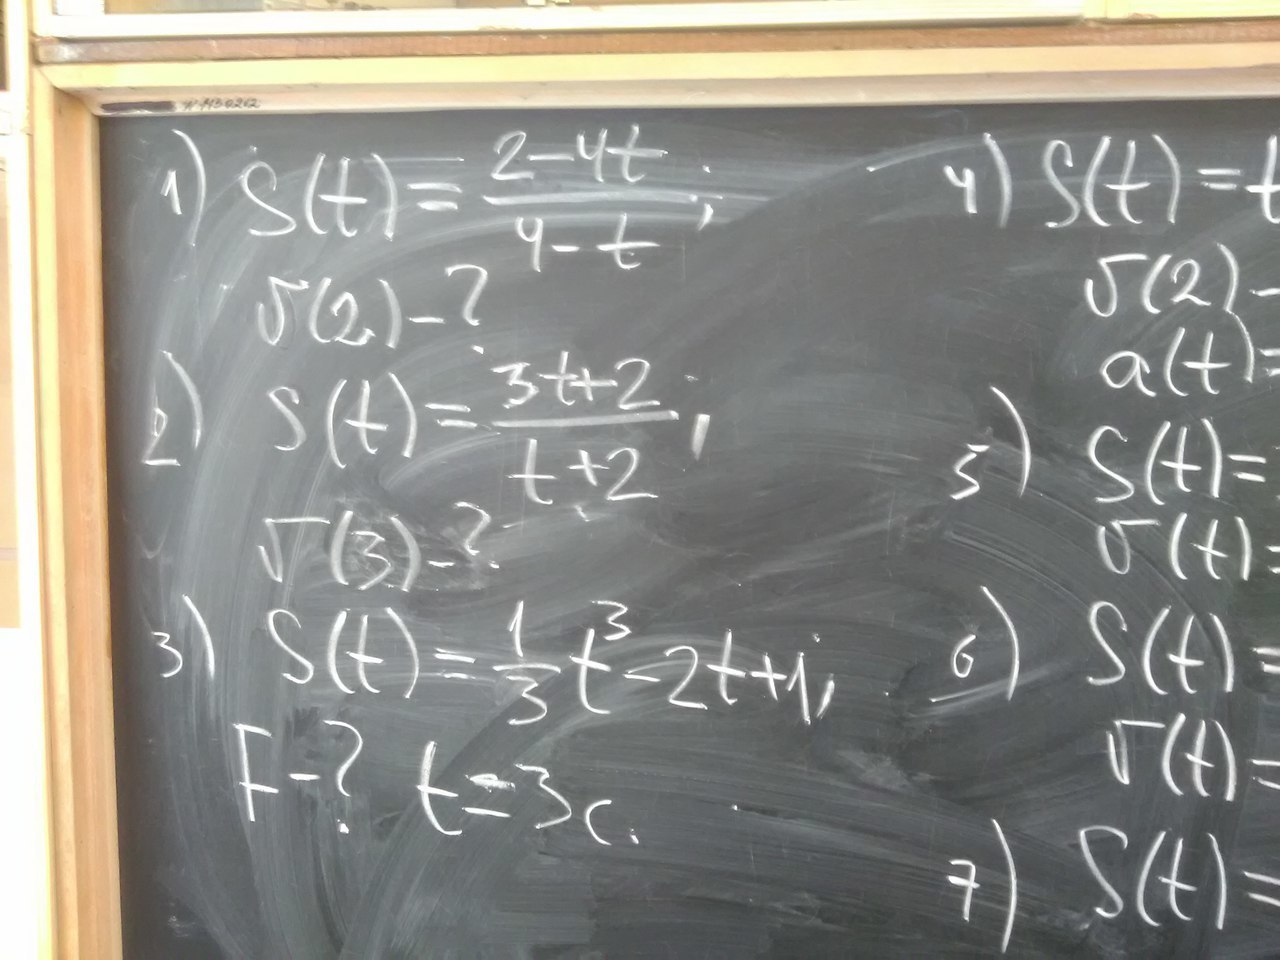 N 1130202
1) S(t) = (2-4t)/(4-t);
v(2) - ?
2) S(t) = (3t+2)/(t+2);
v(3) - ?
3) S(t) = 1/3 t³ - 2t + 1;
F - ? t = 3c.
4) S(t) = t
v(2) -
a(t) =
5) S(t) =
v(t) =
6) S(t) =
v(t) =
7) S(t) =